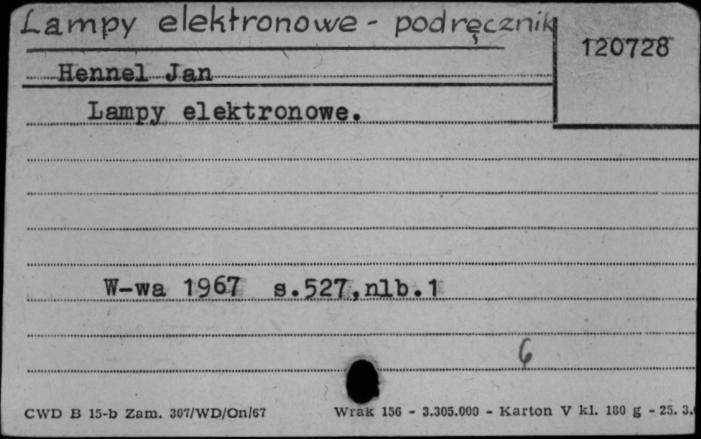 Lampy elektronowe - podręcznik
120728
Hennel Jan
Lampy elektronowe.
W-wa 1967 s.527,nlb.1
6
CWD B 15-b Zam. 307/WD/On/67 Wrak 156 - 3.305.000 - Karton V kl. 180 g - 25. 3.